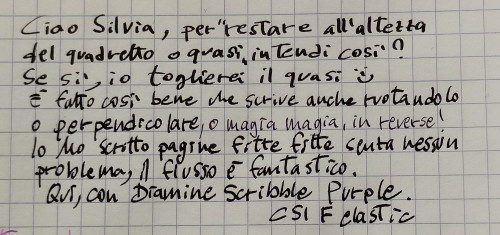 Ciao Silvia, per "restare all'altezza
del quadretto o quasi, intendi così?
Se sì, io toglierei il quasi :)
È fatto così bene che scrive anche ruotandolo
o perpendicolare, o magia magia, in reverse!
Io ho scritto pagine fitte fitte senza nessun
problema, il flusso è fantastico.
Qui, con Diamine Scribble Purple.
CSI F elastic